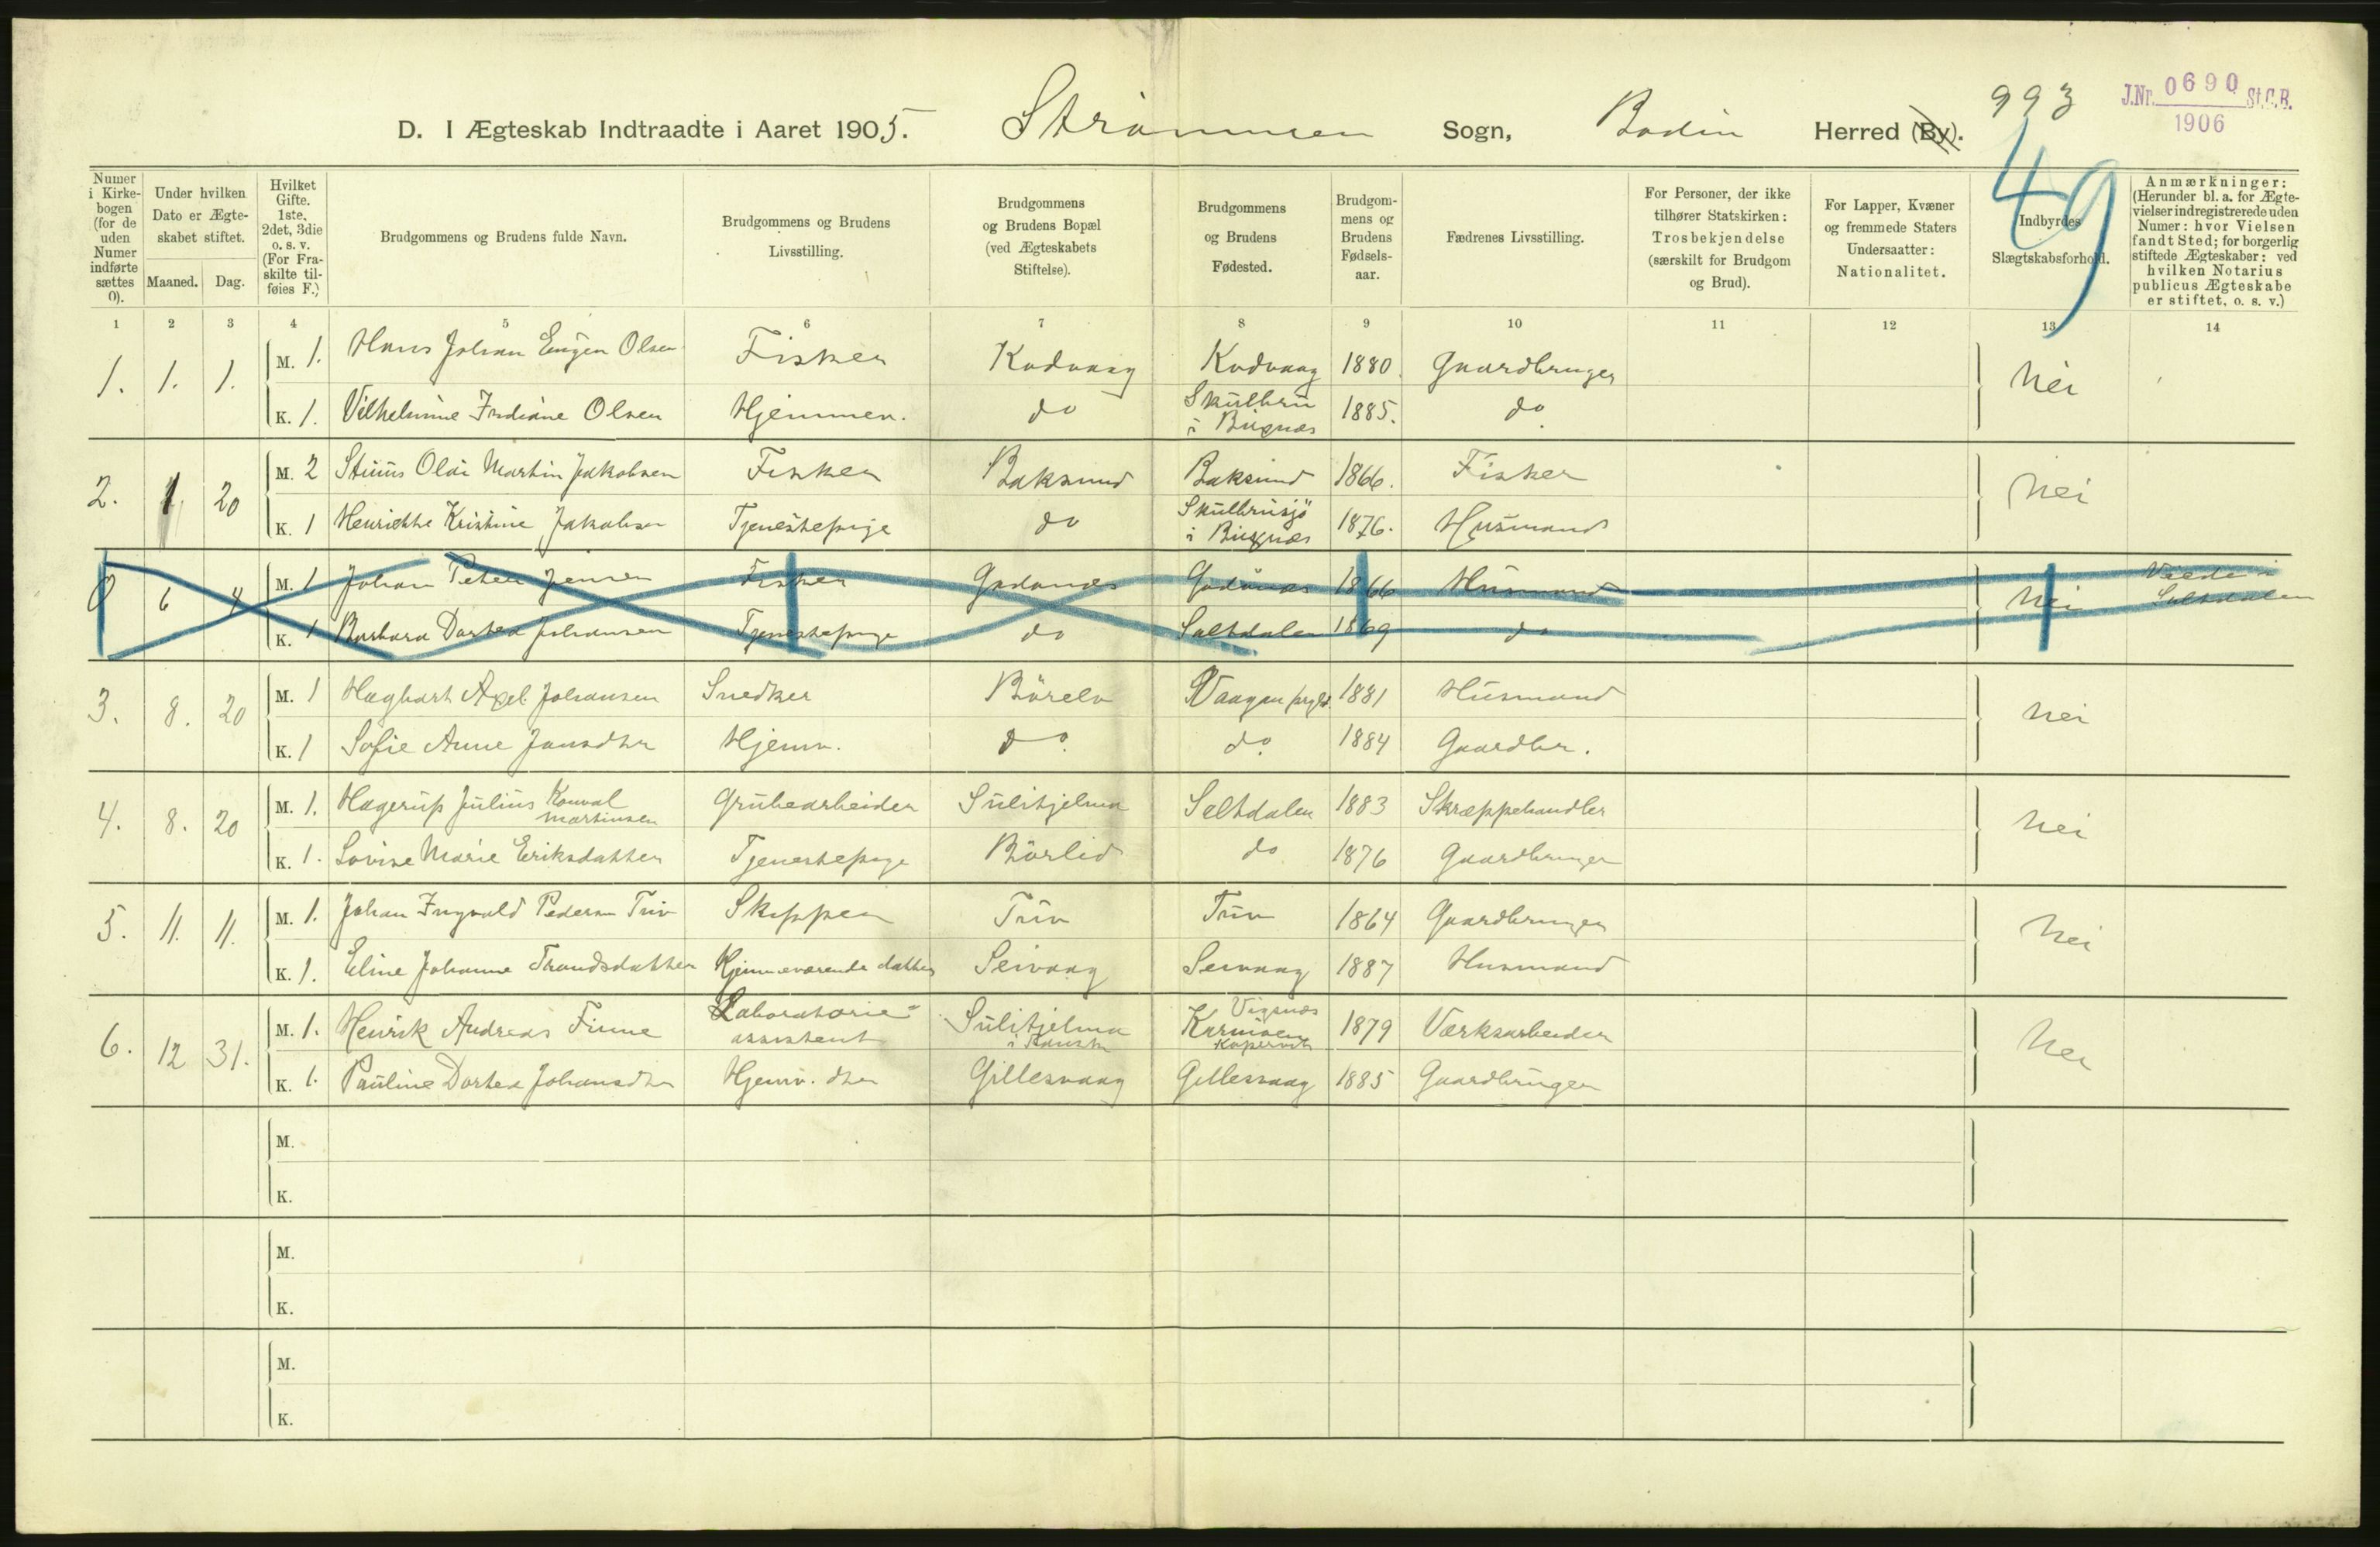 993
J.Nr. 0690 St.C.B.
1906
D. I Ægteskab Indtraadte i Aaret 1905. Strømmen Sogn, Bodin Herred (By).
49
Numer i Kirkebogen (for de uden Numer indførte sættes 0).
Under hvilken Dato er Ægteskabet stiftet.
Maaned. Dag.
Hvilket Gifte. 1ste, 2det, 3die o. s. v. (For Fraskilte tilføies F.)
Brudgommens og Brudens fulde Navn.
Brudgommens og Brudens Livsstilling.
Brudgommens og Brudens Bopæl (ved Ægteskabets Stiftelse).
Brudgommens og Brudens Fødested.
Brudgommens og Brudens Fødselsaar.
Fædrenes Livsstilling.
For Personer, der ikke tilhører Statskirken: Trosbekjendelse (særskilt for Brudgom og Brud).
For Lapper, Kvæner og fremmede Staters Undersaatter: Nationalitet.
Indbyrdes Slægtskabsforhold.
Anmærkninger: (Herunder bl. a. for Ægtevielser indregistrerede uden Numer: hvor Vielsen fandt Sted; for borgerlig stiftede Ægteskaber: ved hvilken Notarius publicus Ægteskabe er stiftet, o. s. v.)
1 2 3 4 5 6 7 8 9 10 11 12 13 14
1. 1. 1. M. 1. Hans Johan Eugen Olsen Fisker Kodvaag Kodvaag 1880 Gaardbruger Nei
K. 1. Vilhelmine Indiane Olsen Hjemmen. do Skulbru i Bugnæs 1885. do
2. 1. 20 M. 2 Olai Martin Jakobsen Fisker Baksund Baksund 1866. Fisker Nei
K. 1 Henriette Kristine Jakobsen Tjenestepige do Skulbrusjö i Bugnæs 1876. Husmand
0 6 4 M. 1 Johan Peter Jensen Fisker Godønes Godønes 1866 Husmand Nei Viede i Saltdalen
K. 1 Barbara Dortea Johansen Tjenestepige do Saltdalen 1869 do
3. 8. 20 M. 1 Hagbart Axel Johansen Snedker Börelv Vaagan 1881 Husmand Nei
K. 1 Sofie Anne Jansdtr Hjemv. do. do. 1884 Gaardbr.
4. 8. 20 M. 1. Hagerup Julius Konval Martinsen Grubearbeider Sulitjelma Saltdalen 1883 Skræppehandler Nei
K. 1. Lovise Marie Eriksdatter Tjenestepige Börlid do 1876 Gaardbruger
5. 11. 11. M. 1. Johan Ingvald Pedersen Tuv Skipper Tuv Tuv 1864 Gaardbruger Nei
K. 1. Eline Johanne Trondsdatter Hjemmeværende datter Seivaag Seivaag 1887 Husmand
6. 12 31. M. 1. Henrik Andreas Finne Laboratorieassistent Sulitjelma Vigsnæs Karmöen Kopervik 1879 Værksarbeider Nei
K. 1. Pauline Dortea Johansdtr Hjemv. dtr Gillesvaag Gillesvaag 1885 Gaardbruger
M.
K.
M.
K.
M.
K.